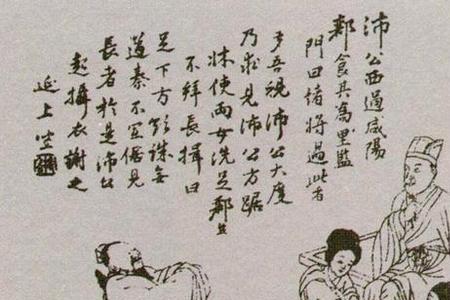 沛公西過咸陽
酈食其為里監
門曰諸將過此者
多吾視沛公大度
乃求見沛公方踞
牀使兩女洗足酈生
不拜長揖曰
足下方欲誅無
道秦不宜倨見
長者於是沛公
起攝衣謝之
延上坐